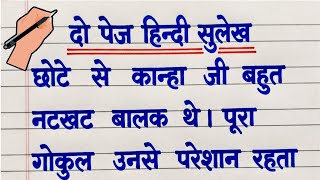 दो पेज हिन्दी सुलेख
छोटे से कान्हा जी बहुत
नटखट बालक थे। पूरा
गोकुल उनसे परेशान रहता